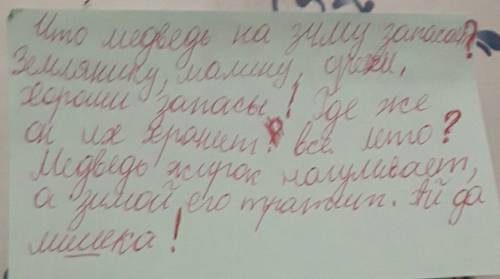 Что медведь на зиму запасает?
Землянику, малину, орехи,
хороши запасы! Где же
он их хранит? всё лето?
Медведь жирок нагуливает,
а зимой его тратит. Ай да
мишека!